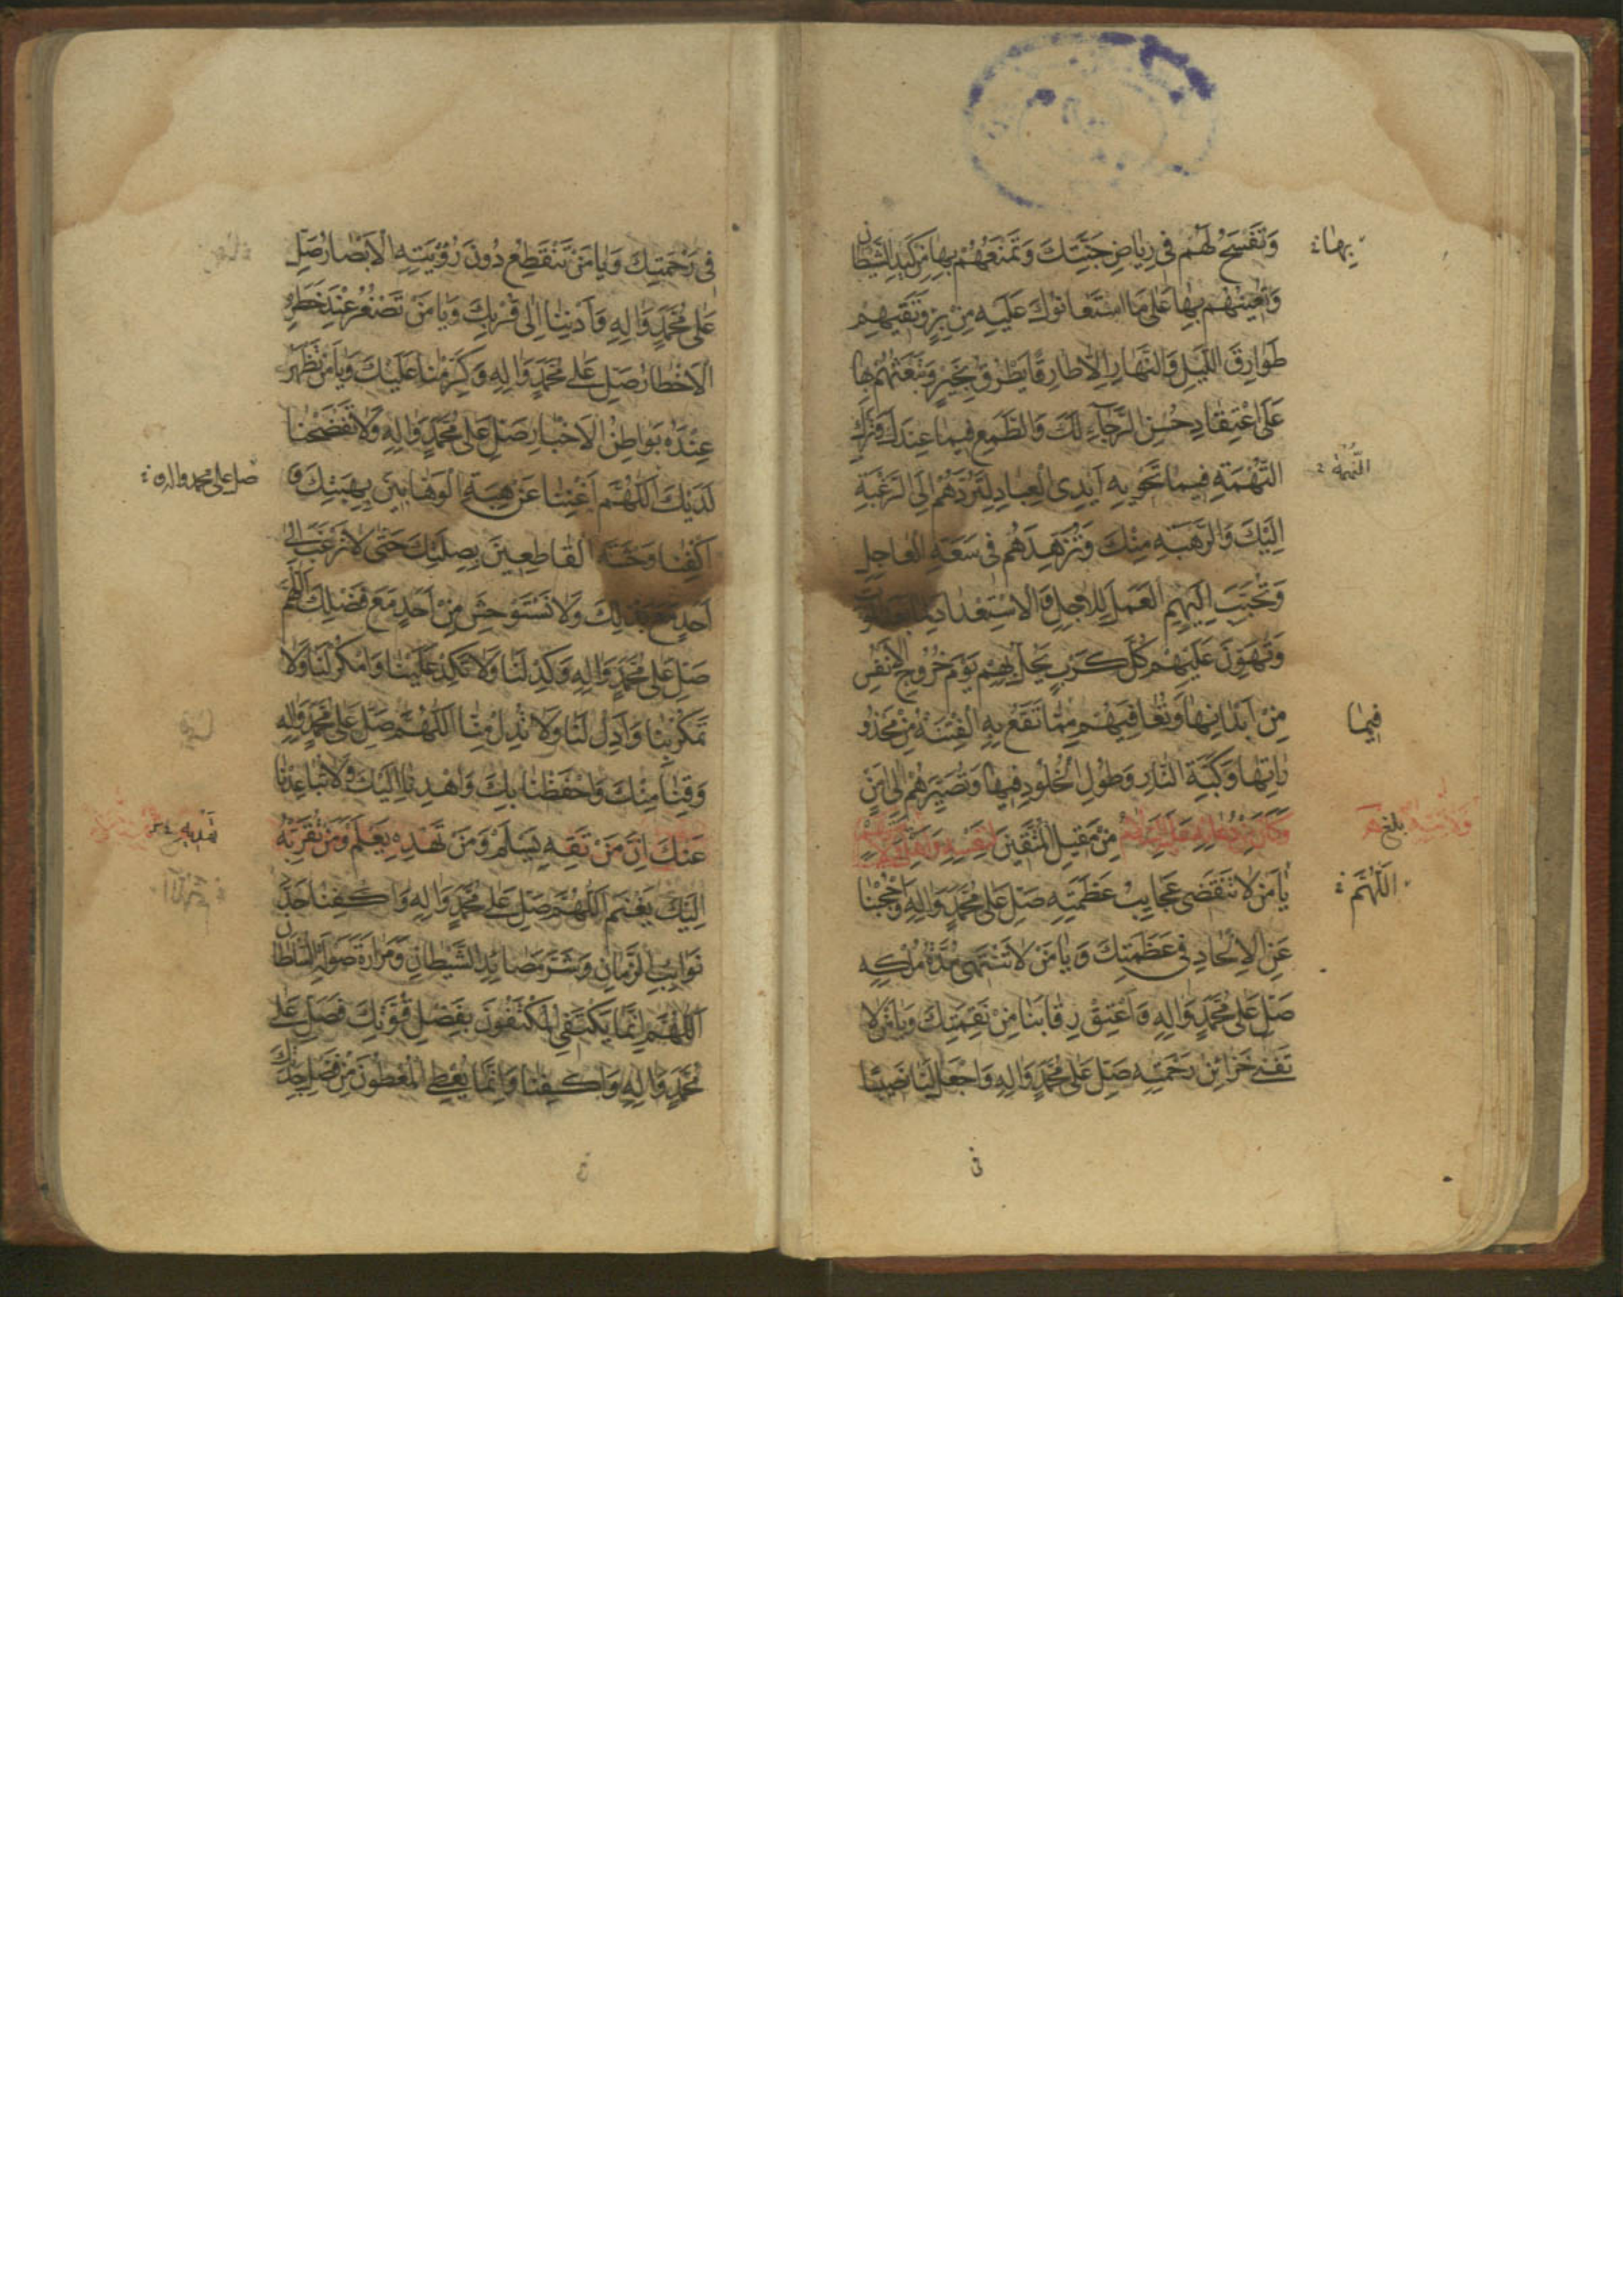 وَتَفْسَحُ لَهُمْ فِي رِيَاضِ جَنَّتِكَ وَتَمْنَعُهُمْ بِهَا مِنْ كَيْدِ الشَّيْطَانِ
بها
وَتُعِينُهُمْ بِهَا عَلَى مَا اسْتَعَانُوكَ عَلَيْهِ مِنْ بِرٍّ وَتَقِيهِمْ
طَوَارِقَ اللَّيْلِ وَالنَّهَارِ إِلَّا طَارِقًا يَطْرُقُ بِخَيْرٍ وَتَبْعَثُهُمْ بِهَا
عَلَى اعْتِقَادِ حُسْنِ الرَّجَاءِ لَكَ وَالطَّمَعِ فِيمَا عِنْدَكَ وَتَرْكِ
التُّهْمَةِ فِيمَا تَحْوِيهِ أَيْدِي الْعِبَادِ لِتَرُدَّهُمْ إِلَى الرَّغْبَةِ
إِلَيْكَ وَالرَّهْبَةِ مِنْكَ وَتُزَهِّدَهُمْ فِي سَعَةِ الْعَاجِلِ
وَتُحَبِّبَ إِلَيْهِمُ الْعَمَلَ لِلْآجِلِ وَالْاِسْتِعْدَادَ
وَتُهَوِّنَ عَلَيْهِمْ كُلَّ كَرْبٍ يَحُلُّ بِهِمْ يَوْمَ خُرُوجِ الْأَنْفُسِ
مِنْ أَبْدَانِهَا وَتُعَافِيَهُمْ مِمَّا تَقَعُ بِهِ الْفِتْنَةُ مِنْ مَحْذُو
فيما
رَاتِهَا وَكَبَّةِ النَّارِ وَطُولِ الْخُلُودِ فِيهَا وَتُصَيِّرَهُمْ إِلَى أَمْنٍ
مِنْ مَقِيلِ الْمُتَّقِينَ وَكَانَ مِنْ دُعَائِهِ عَلَيْهِ السَّلَامُ لِنَفْسِهِ وَأَهْلِ وَلَايَتِهِ
بلغ
يَا مَنْ لَا تَنْقَضِي عَجَايِبُ عَظَمَتِهِ صَلِّ عَلَى مُحَمَّدٍ وَآلِهِ وَاحْجُبْنَا
اللهم
عَنِ الْإِلْحَادِ فِي عَظَمَتِكَ وَيَا مَنْ لَا تَنْتَهِي مُدَّةُ مُلْكِهِ
صَلِّ عَلَى مُحَمَّدٍ وَآلِهِ وَأَعْتِقْ رِقَابَنَا مِنْ نَقِمَتِكَ وَيَا مَنْ لَا
تَفْنَى خَزَائِنُ رَحْمَتِهِ صَلِّ عَلَى مُحَمَّدٍ وَآلِهِ وَاجْعَلْ لَنَا نَصِيبًا
فى
فِي رَحْمَتِكَ وَيَا مَنْ تَنْقَطِعُ دُونَ رُؤْيَتِهِ الْأَبْصَارُ صَلِّ
عَلَى مُحَمَّدٍ وَآلِهِ وَأَدْنِنَا إِلَى قُرْبِكَ وَيَا مَنْ تَصْغُرُ عِنْدَ خَطَرِهِ
الْأَخْطَارُ صَلِّ عَلَى مُحَمَّدٍ وَآلِهِ وَكَرِّمْنَا عَلَيْكَ وَيَا مَنْ تَظْهَرُ
عِنْدَهُ بَوَاطِنُ الْأَخْبَارِ صَلِّ عَلَى مُحَمَّدٍ وَآلِهِ وَلَا تَفْضَحْنَا
لَدَيْكَ اَللَّهُمَّ أَغْنِنَا عَنْ هِبَةِ الْوَهَّابِينَ بِهِبَتِكَ وَ
صل على محمد واله و
اكْفِنَا وَحْشَةَ الْقَاطِعِينَ بِصِلَتِكَ حَتَّى لَا نَرْغَبَ إِلَى
أَحَدٍ مَعَ بَذْلِكَ وَلَا نَسْتَوْحِشَ مِنْ أَحَدٍ مَعَ فَضْلِكَ اللَّهُمَّ
صَلِّ عَلَى مُحَمَّدٍ وَآلِهِ وَكِدْ لَنَا وَلَا تَكِدْ عَلَيْنَا وَامْكُرْ لَنَا وَلَا
تَمْكُرْ بِنَا وَأَدِلْ لَنَا وَلَا تُدِلْ مِنَّا اَللَّهُمَّ صَلِّ عَلَى مُحَمَّدٍ وَآلِهِ
وَقِنَا مِنْكَ وَاحْفَظْنَا بِكَ وَاهْدِنَا إِلَيْكَ وَلَا تُبَاعِدْنَا
عَنْكَ إِنَّ مَنْ تَقِهِ يَسْلَمْ وَمَنْ تَهْدِهِ يَعْلَمْ وَمَنْ تُقَرِّبْهُ
إِلَيْكَ يَغْنَمْ اَللَّهُمَّ صَلِّ عَلَى مُحَمَّدٍ وَآلِهِ وَاكْفِنَا حَدَّ
نَوَايِبِ الزَّمَانِ وَشَرَّ مَصَائِدِ الشَّيْطَانِ وَمَرَارَةَ صَوْلَةِ السُّلْطَانِ
اَللَّهُمَّ إِنَّمَا يَكْتَفِي الْمُكْتَفُونَ بِفَضْلِ قُوَّتِكَ فَصَلِّ عَلَى
مُحَمَّدٍ وَآلِهِ وَاكْفِنَا وَإِنَّمَا يُعْطِي الْمُعْطُونَ مِنْ فَضْلِ جِدَتِكَ